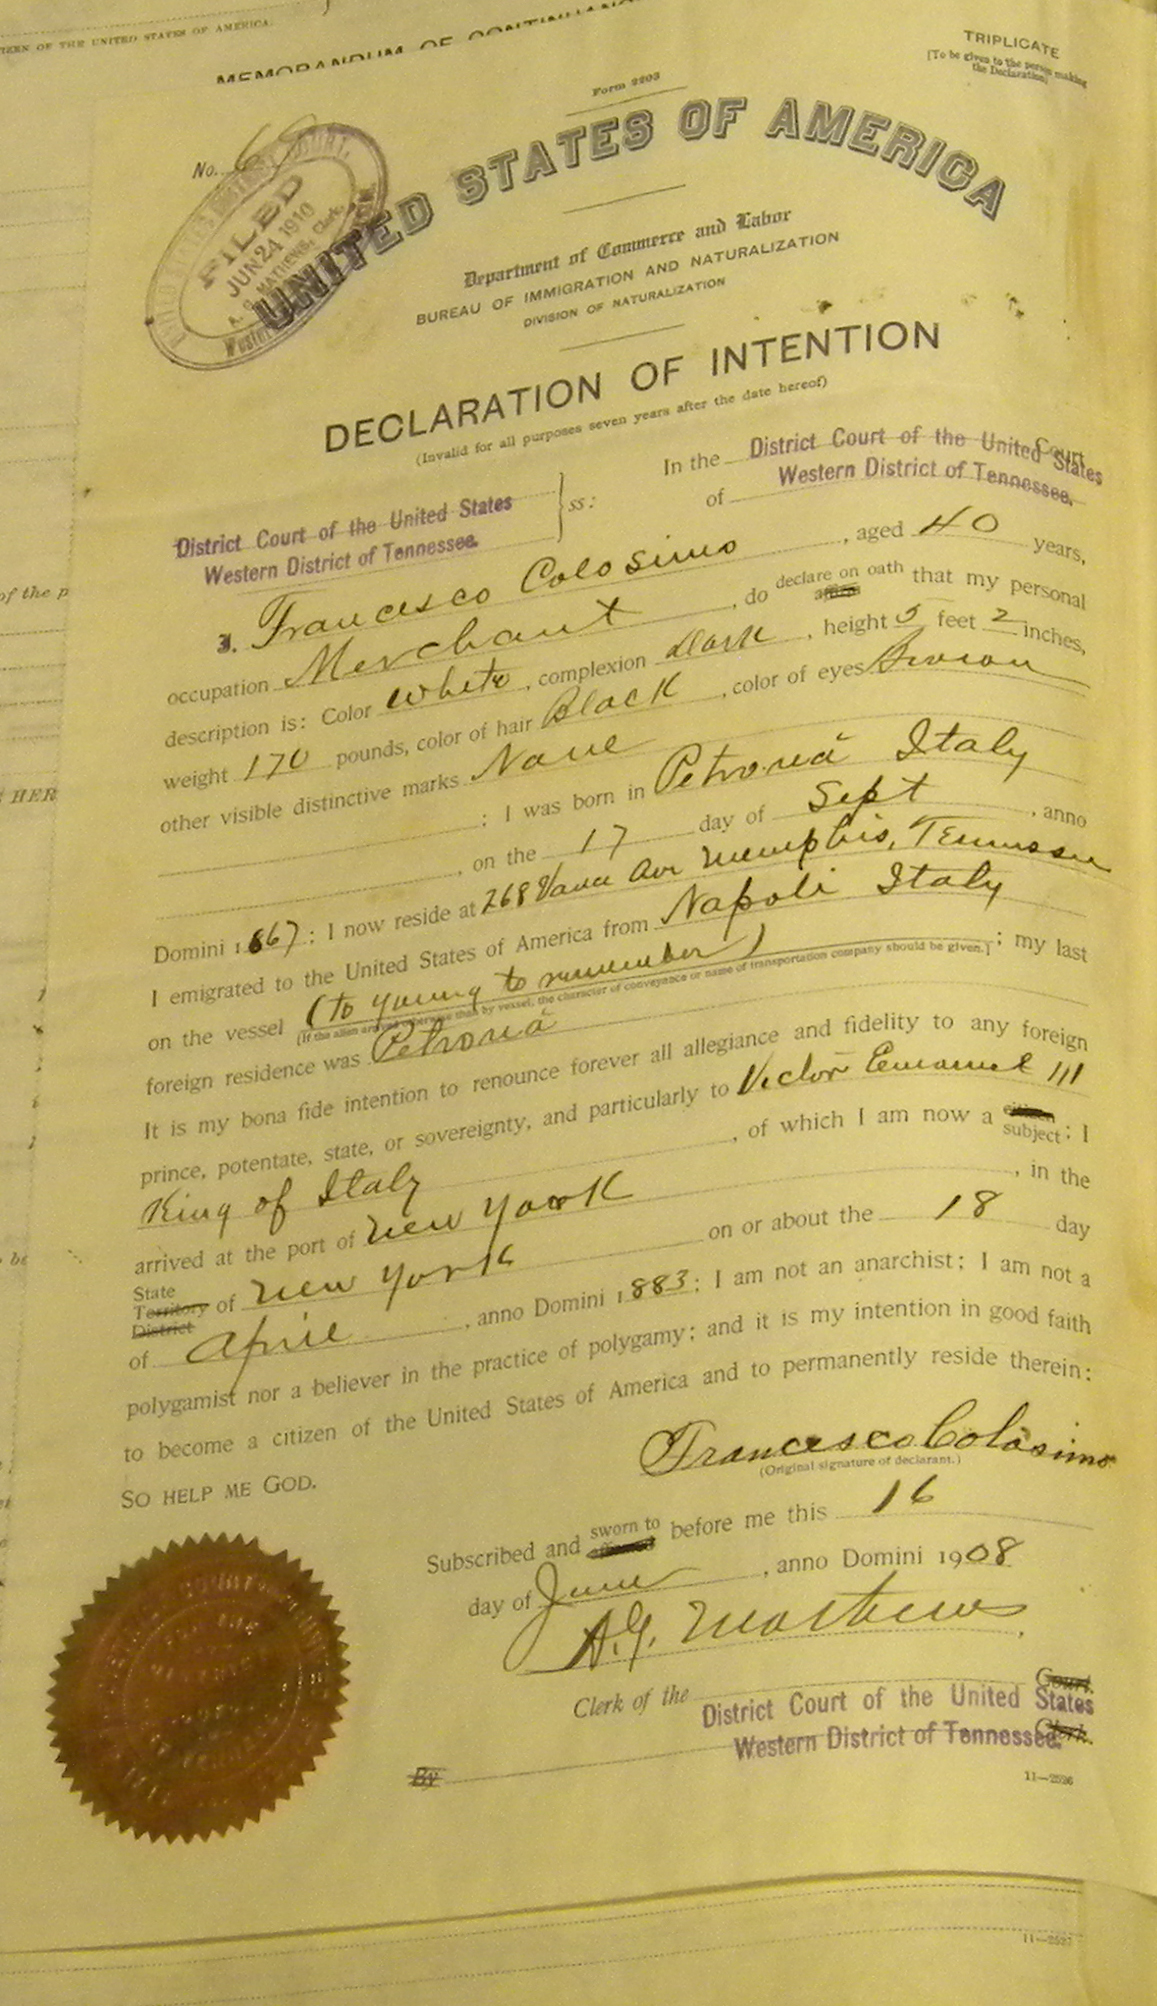 TIZEN OF THE UNITED STATES OF AMERICA.
MEMORANDUM OF CONTINUANC
TRIPLICATE
[To be given to the person making
the Declaration]
Form 2203
No.
FILED
JUN 24 1910
A. G. MATHEWS, Clerk.
Western
UNITED STATES OF AMERICA
Department of Commerce and Labor
BUREAU OF IMMIGRATION AND NATURALIZATION
DIVISION OF NATURALIZATION
DECLARATION OF INTENTION
(Invalid for all purposes seven years after the date hereof)
District Court of the United States
Western District of Tennessee.
ss:
In the District Court of the United States Court
of Western District of Tennessee.
I, Francesco Colosimo, aged 40 years,
occupation Merchant, do declare on oath affirm that my personal
description is: Color white, complexion dark, height 5 feet 2 inches,
weight 170 pounds, color of hair Black, color of eyes Brown
other visible distinctive marks None
: I was born in Petroná Italy
, on the 17 day of Sept, anno
Domini 1867: I now reside at 268 Ave Memphis, Tennessee
I emigrated to the United States of America from Napoli Italy
on the vessel (to young to remember); my last
[If the alien arrived otherwise than by vessel, the character of conveyance or name of transportation company should be given.]
foreign residence was Petroná
It is my bona fide intention to renounce forever all allegiance and fidelity to any foreign
prince, potentate, state, or sovereignty, and particularly to Victor Emanuel III
King of Italy, of which I am now a citizen subject; I
arrived at the port of New York, in the
State Territory District of New York on or about the 18 day
of April, anno Domini 1883: I am not an anarchist; I am not a
polygamist nor a believer in the practice of polygamy; and it is my intention in good faith
to become a citizen of the United States of America and to permanently reside therein:
SO HELP ME GOD.
Francesco Colosimo
(Original signature of declarant.)
Subscribed and sworn to before me this 16
day of June, anno Domini 1908
A.G. Mathews
Clerk of the District Court of the United States Court.
Western District of Tennessee. Clerk.
By
11—2526
11—2527
of the p
HER
be